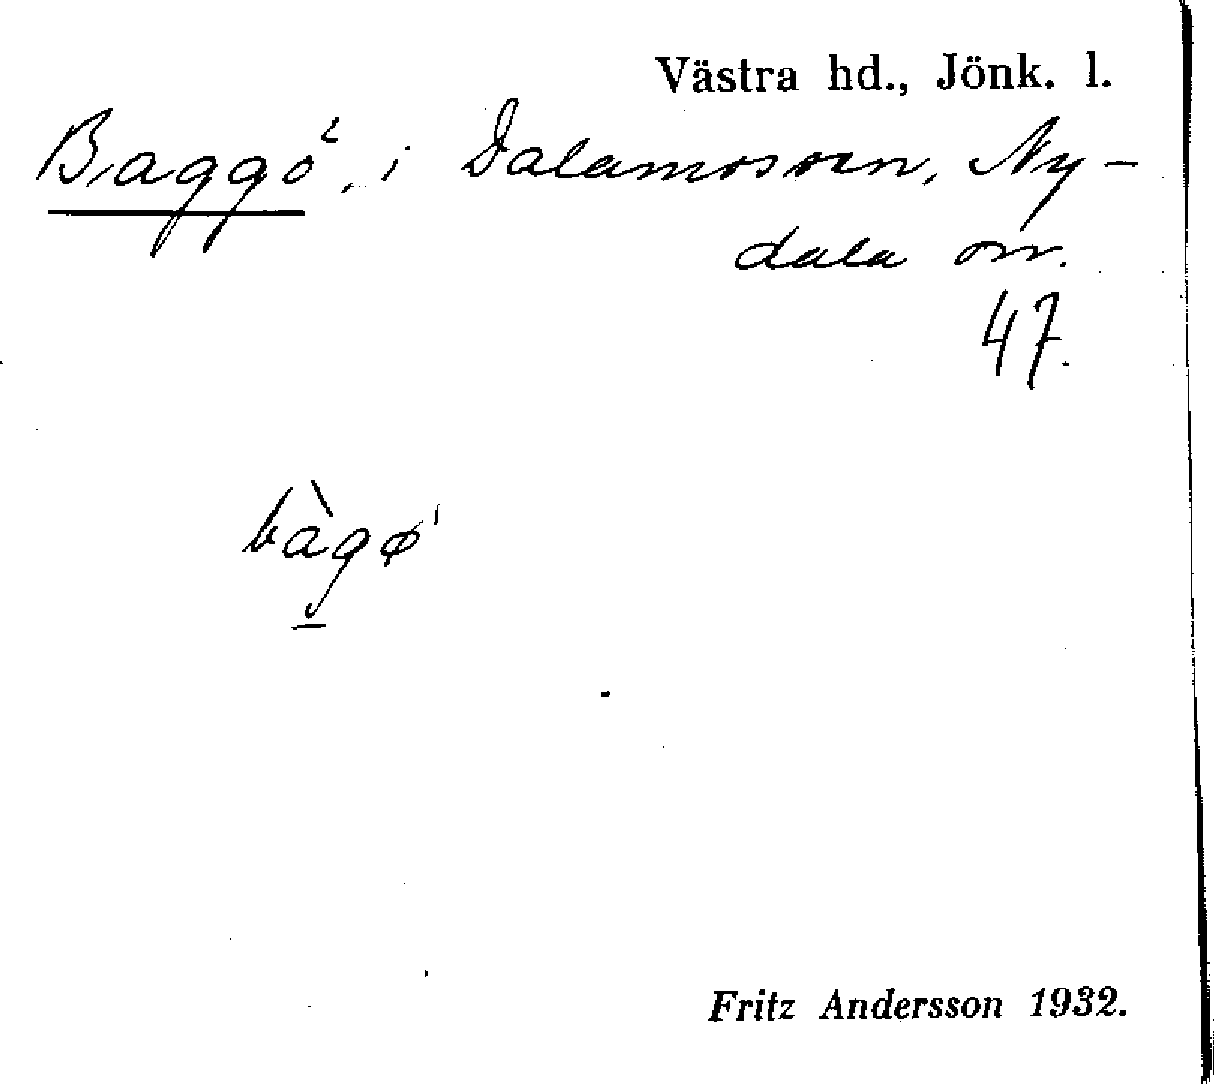 Västra hd., Jönk. l.
Baggö, i Dalamossen, Ny-
dala sn.
47.
bàgø
Fritz Andersson 1932.